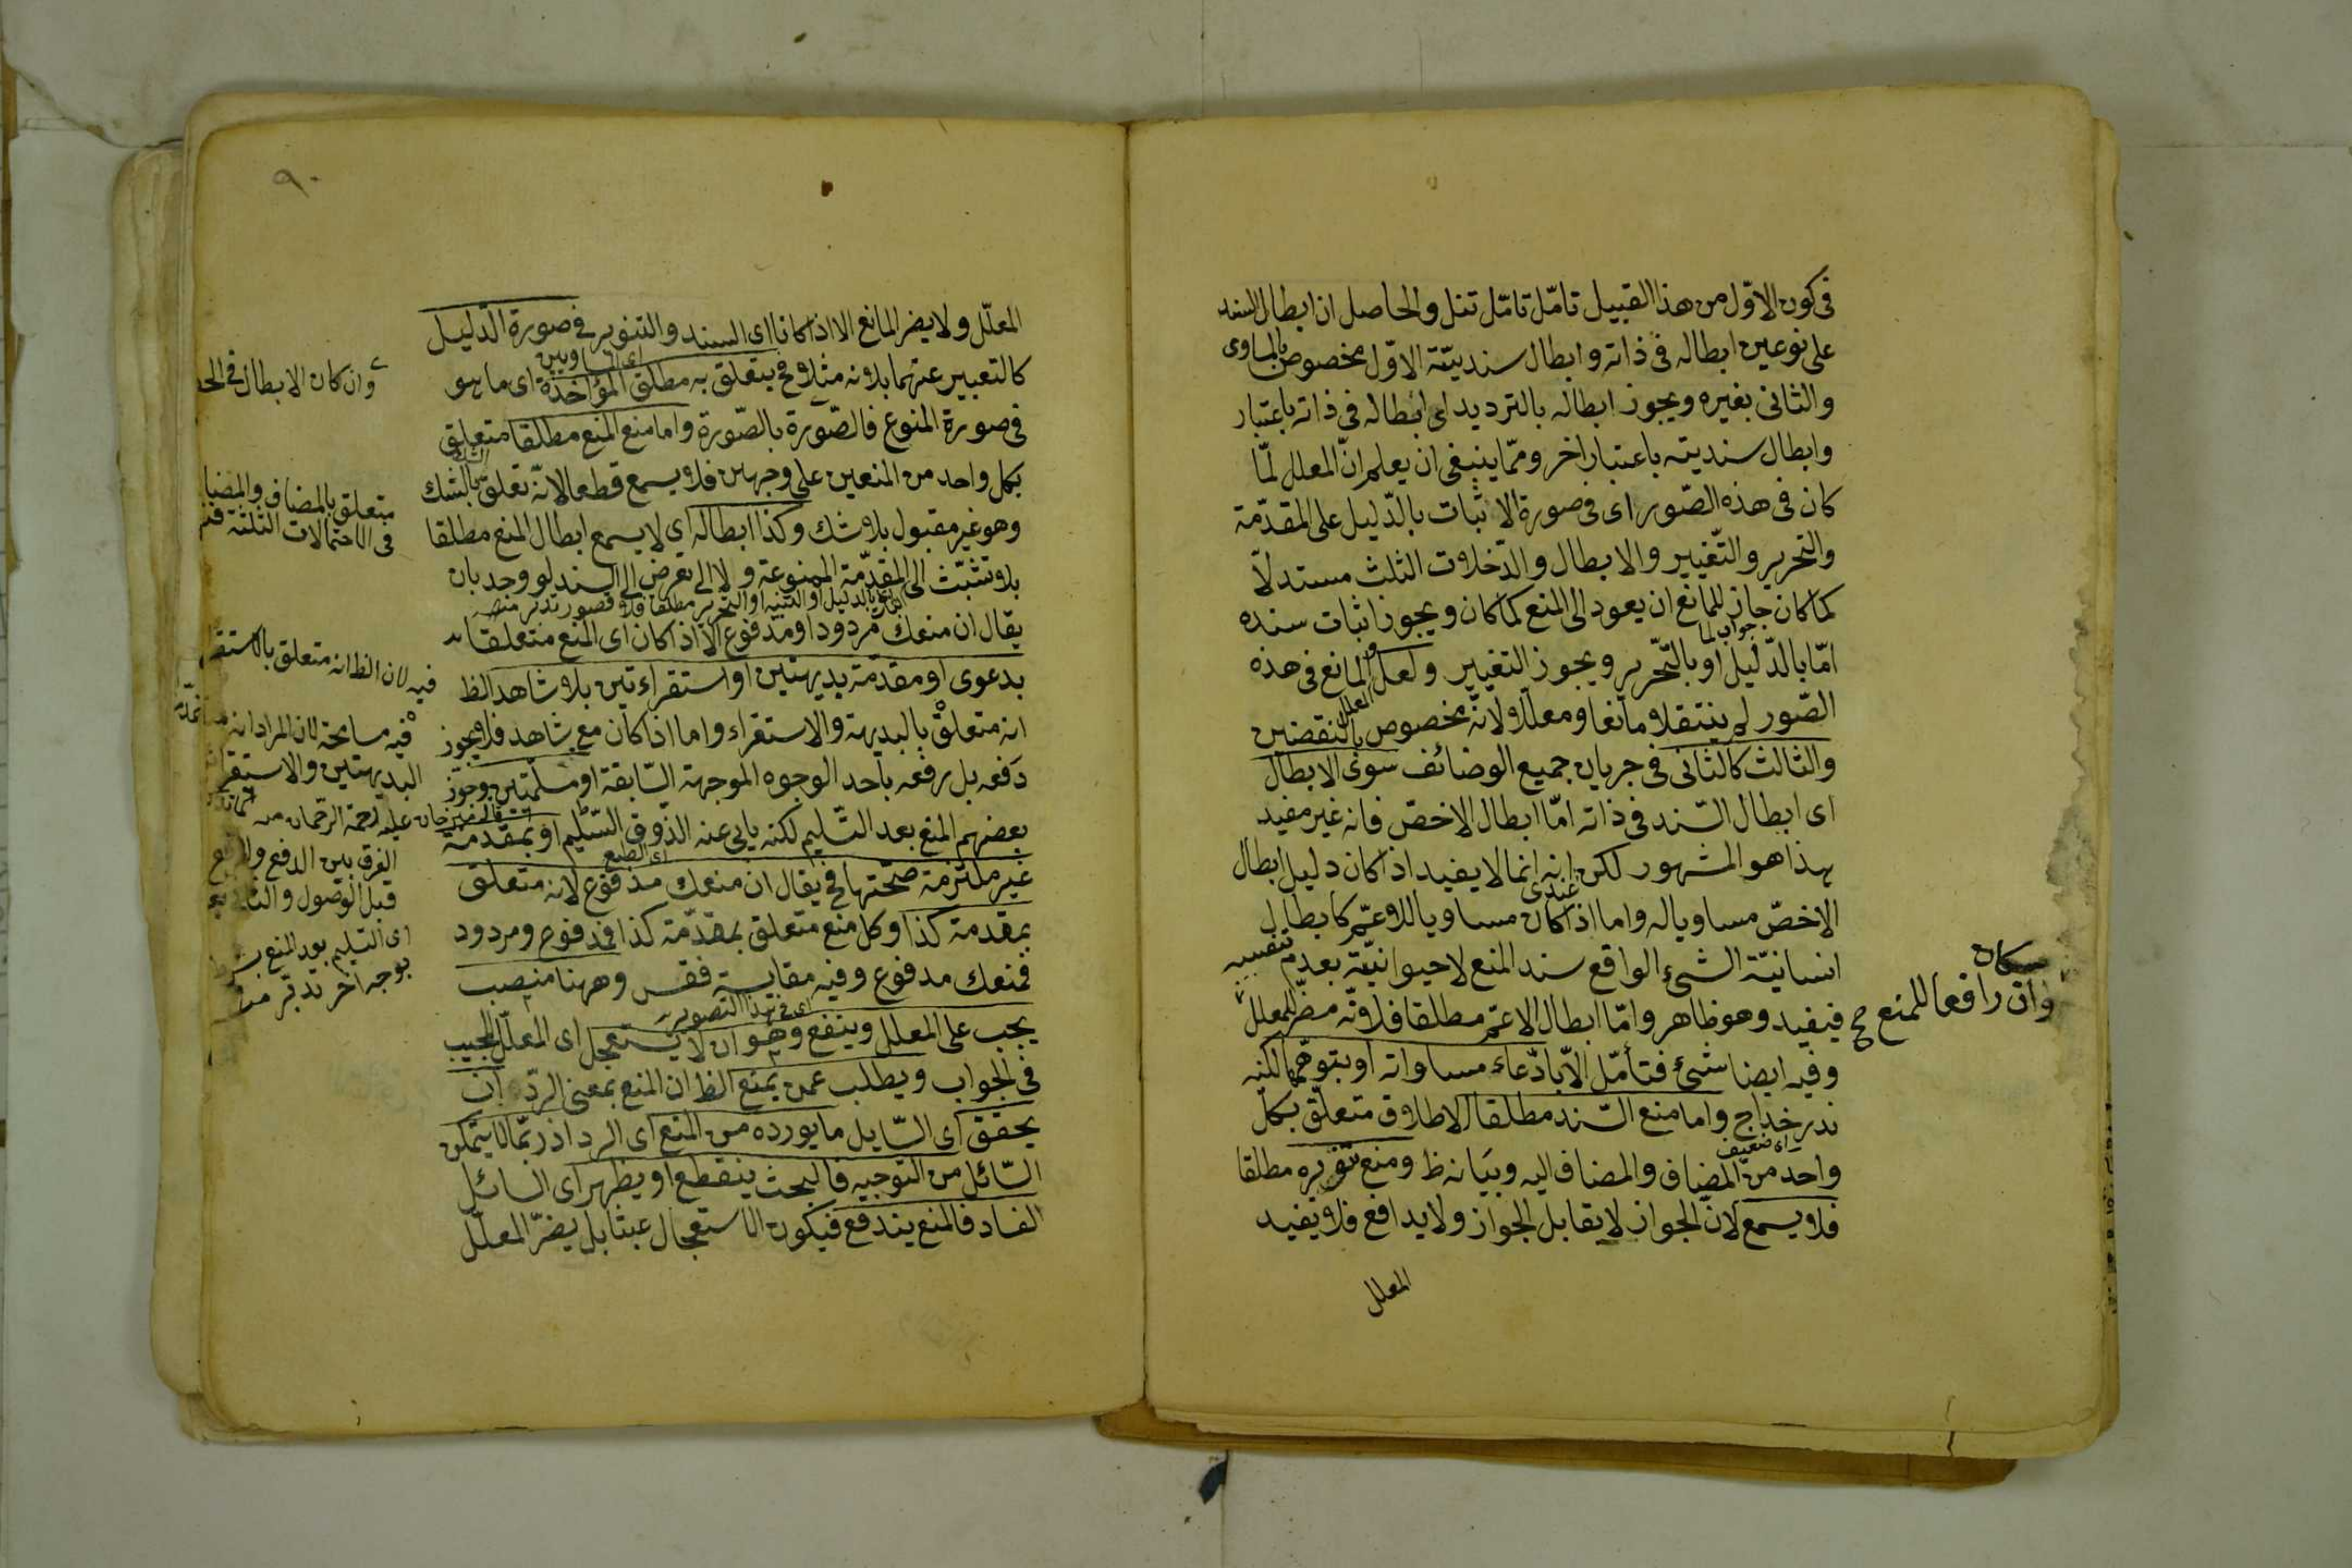 فى كون الاوّل من هذا القبيل تامّل تامّل تنل والحاصل ان ابطال السند
على نوعين ابطاله فى ذاته وابطال سنديته الاوّل مخصوص بالمساوى
والثانى بغيره ويجوز ابطاله بالترديد اى ابطاله فى ذاته باعتبار
وابطال سنديته باعتبار اخر وممّا ينبغى ان يعلم انّ المعلل لمّا
كان فى هذه الصّور اى فى صورة الاثبات بالدّليل على المقدّمة
والتحرير والتّغيير والابطال والدّخلات الثلث مستدلّا
كما كان جاز للمانع ان يعود الى المنع كما كان ويجوز اثبات سنده
جواب لما
امّا بالدّليل او بالتّحرير ويجوز التغيير ولعلّ المانع فى هذه
الصّور لم ينتقلا مانعا ومعلّلا لانّه مخصوص بالنقضين
والثالث كالثانى فى جريان جميع الوضائف سوى الابطال
اى ابطال السّند فى ذاته امّا ابطال الاخصّ فانه غير مفيد
هذا هو المشهور لكن انه انما لا يفيد اذا كان دليل ابطال
عندى
الاخصّ مساويا له واما اذا كان مساويا للاعمّ كابطال
انسانيّة الشئ الواقع سند المنع لا حيوانيّته بعدم
فيفيد وهو ظاهر وامّا ابطال الاعمّ مطلقا فلانّه مضرّ للمعلل
وان رافعا للمنع ح
وفيه ايضا شئ فتأمّل الّا بادّعاء مساواته او بتوهّمها لكنه
ندر خداج واما منع السّند مطلقا الاطلاق متعلّق بكلّ
اى ضعيف
واحد من المضاف والمضاف اليه وبيانه ظ ومنع تنويره مطلقا
فلا يسمع لانّ الجواز لا يقابل الجواز ولا يدافع فلا يفيد
المعلل
٩٠
المعلّل ولا يضر المانع الا اذا كانا اى السند والتنوير فى صورة الدّليل
كالتعبير عنهما بلانه مثلا فح يتعلق به مطلق المؤاخذة اى ما هو
فى صورة المنوع فالصّورة بالصّورة واما منع المنع مطلقا متعلق
بكل واحد من المنعين على وجهين فلا يسمع قطعا لانّه تعلّق بالشك
وهو غير مقبول بلا شك وكذا ابطاله اى لا يسمع ابطال المنع مطلقا
بلا تشبّث الى المقدّمة الممنوعة ولا الى تعرض الى السند لو وجد بان
يقال ان منعك مردود او مدفوع الا اذا كان اى المنع متعلقا
بدعوى او مقدّمة بديهتين او استقراءتين بلا شاهد الظ
انه متعلق بالبديهة والاستقراء واما اذا كان مع شاهد فلا يجوز
دفعه بل رفعه باحد الوجوه الموجهة السّابقة او مسلّمتين وجوّز
بعضهم المنع بعد التسليم لكنه يابى عنه الذّوق السّليم او بمقدّمة
اى الطبع
غير ملتزمة صحّتها فح يقال ان منعك مدفوع لانه متعلق
بمقدمة كذا وكل منع متعلق بمقدّمة كذا فمدفوع ومردود
فمنعك مدفوع وفيه مقايسة فقس وههنا منصب
يجب على المعلل وينفع وهو ان لا يستعجل اى المعلّل المجيب
فى الجواب ويطلب عمن يمنع الظ ان المنع بمعنى الردّ ان
يحقق اى السّايل ما يورده من المنع اى الرد اذ ربّما لا يتمكن
السّائل من التوجيه فالبحث ينقطع او يظهر اى السائل
الفساد فالمنع يندفع فيكون الاستعجال عبثا بل يضرّ المعلّل
وان كان الابطال فى
متعلق بالمضاف
فى الاحتمالات الثلثة
فيه لان الظ انه متعلق
فيه مسامحة لان المراد انه
البديهتين
عليه رحمة الرّحمان
الفرق بين الدفع
قبل الوصول
اى التسليم بعد المنع
بوجه اخر تدبر منه